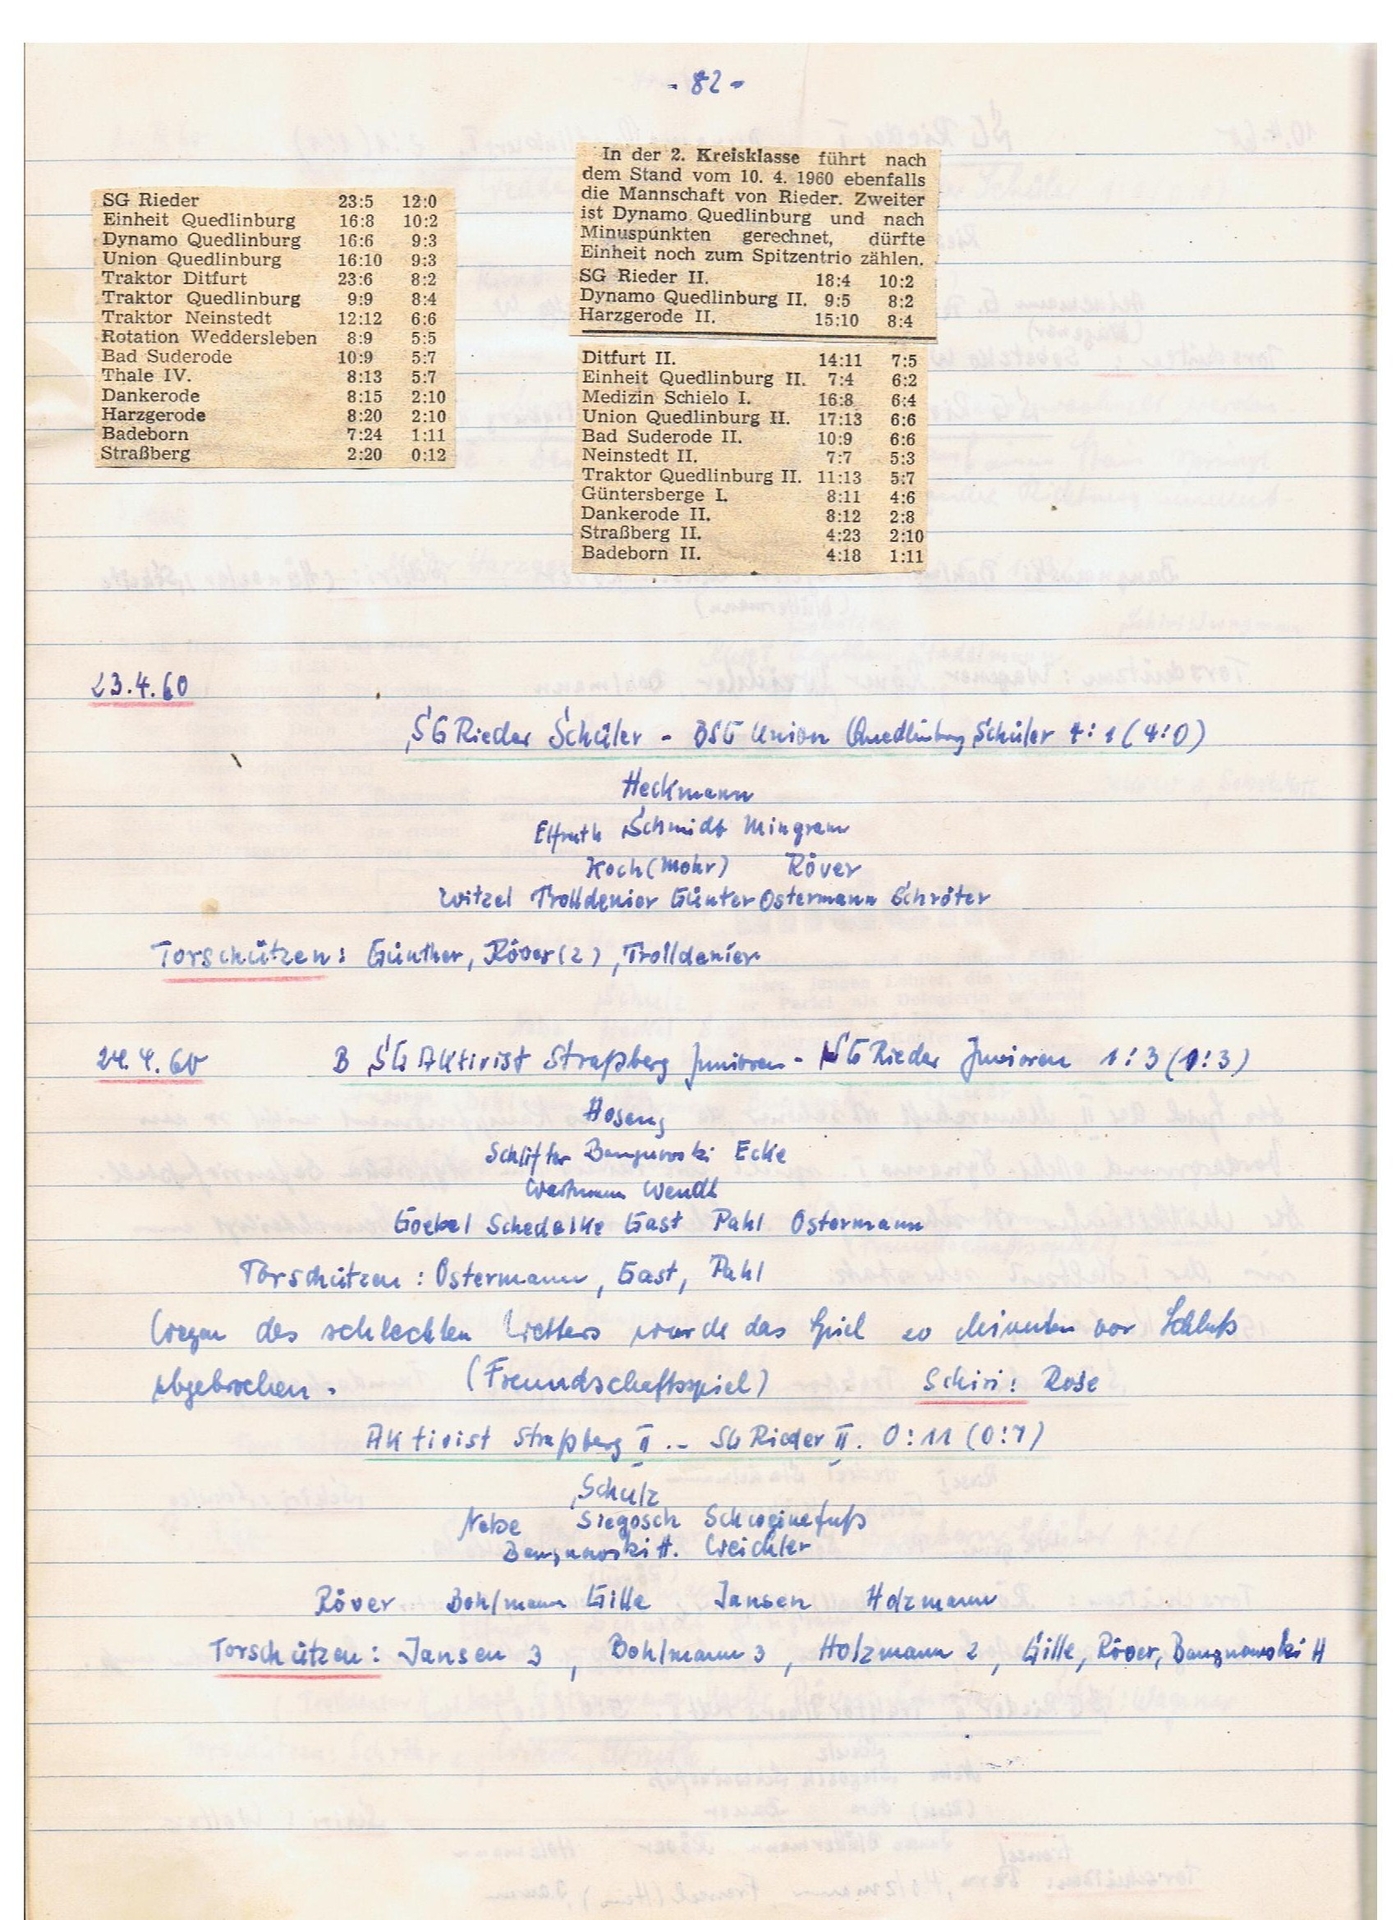 - 82 -
SG Rieder 23:5 12:0
Einheit Quedlinburg 16:8 10:2
Dynamo Quedlinburg 16:6 9:3
Union Quedlinburg 16:10 9:3
Traktor Ditfurt 23:6 8:2
Traktor Quedlinburg 9:9 8:4
Traktor Neinstedt 12:12 6:6
Rotation Weddersleben 8:9 5:5
Bad Suderode 10:9 5:7
Thale IV. 8:13 5:7
Dankerode 8:15 2:10
Harzgerode 8:20 2:10
Badeborn 7:24 1:11
Straßberg 2:20 0:12
In der 2. Kreisklasse führt nach
dem Stand vom 10. 4. 1960 ebenfalls
die Mannschaft von Rieder. Zweiter
ist Dynamo Quedlinburg und nach
Minuspunkten gerechnet, dürfte
Einheit noch zum Spitzentrio zählen.
SG Rieder II. 18:4 10:2
Dynamo Quedlinburg II. 9:5 8:2
Harzgerode II. 15:10 8:4
Ditfurt II. 14:11 7:5
Einheit Quedlinburg II. 7:4 6:2
Medizin Schielo I. 16:8 6:4
Union Quedlinburg II. 17:13 6:6
Bad Suderode II. 10:9 6:6
Neinstedt II. 7:7 5:3
Traktor Quedlinburg II. 11:13 5:7
Güntersberge I. 8:11 4:6
Dankerode II. 8:12 2:8
Straßberg II. 4:23 2:10
Badeborn II. 4:18 1:11
23.4.60
SG Rieder Schüler - BSG Union Quedlinburg Schüler 4:1 (4:0)
Heckmann
Elfruth Schmidt Mingram
Koch (Mohr) Röver
Witzel Trolldenier Günter Ostermann Schröter
Torschützen: Günther, Röver (2), Trolldenier
24.4.60 BSG Aktivist Straßberg Junioren - SG Rieder Junioren 1:3 (0:3)
Hoseng
Schlifter Bangnowski Ecke
Wertmann Wendt
Goebel Schedalke Gast Pahl Ostermann
Torschützen: Ostermann, Gast, Pahl
Wegen des schlechten Wetters wurde das Spiel 20 Minuten vor Schluß
abgebrochen. (Freundschaftsspiel) Schiri: Rose
Aktivist Straßberg II. - SG Rieder II. 0:11 (0:7)
Schulz
Nebe Siegosch Schweinefuß
Bangnowski H. Weichler
Röver Bohlmann Gille Jansen Holzmann
Torschützen: Jansen 3, Bohlmann 3, Holzmann 2, Gille, Röver, Bangnowski H